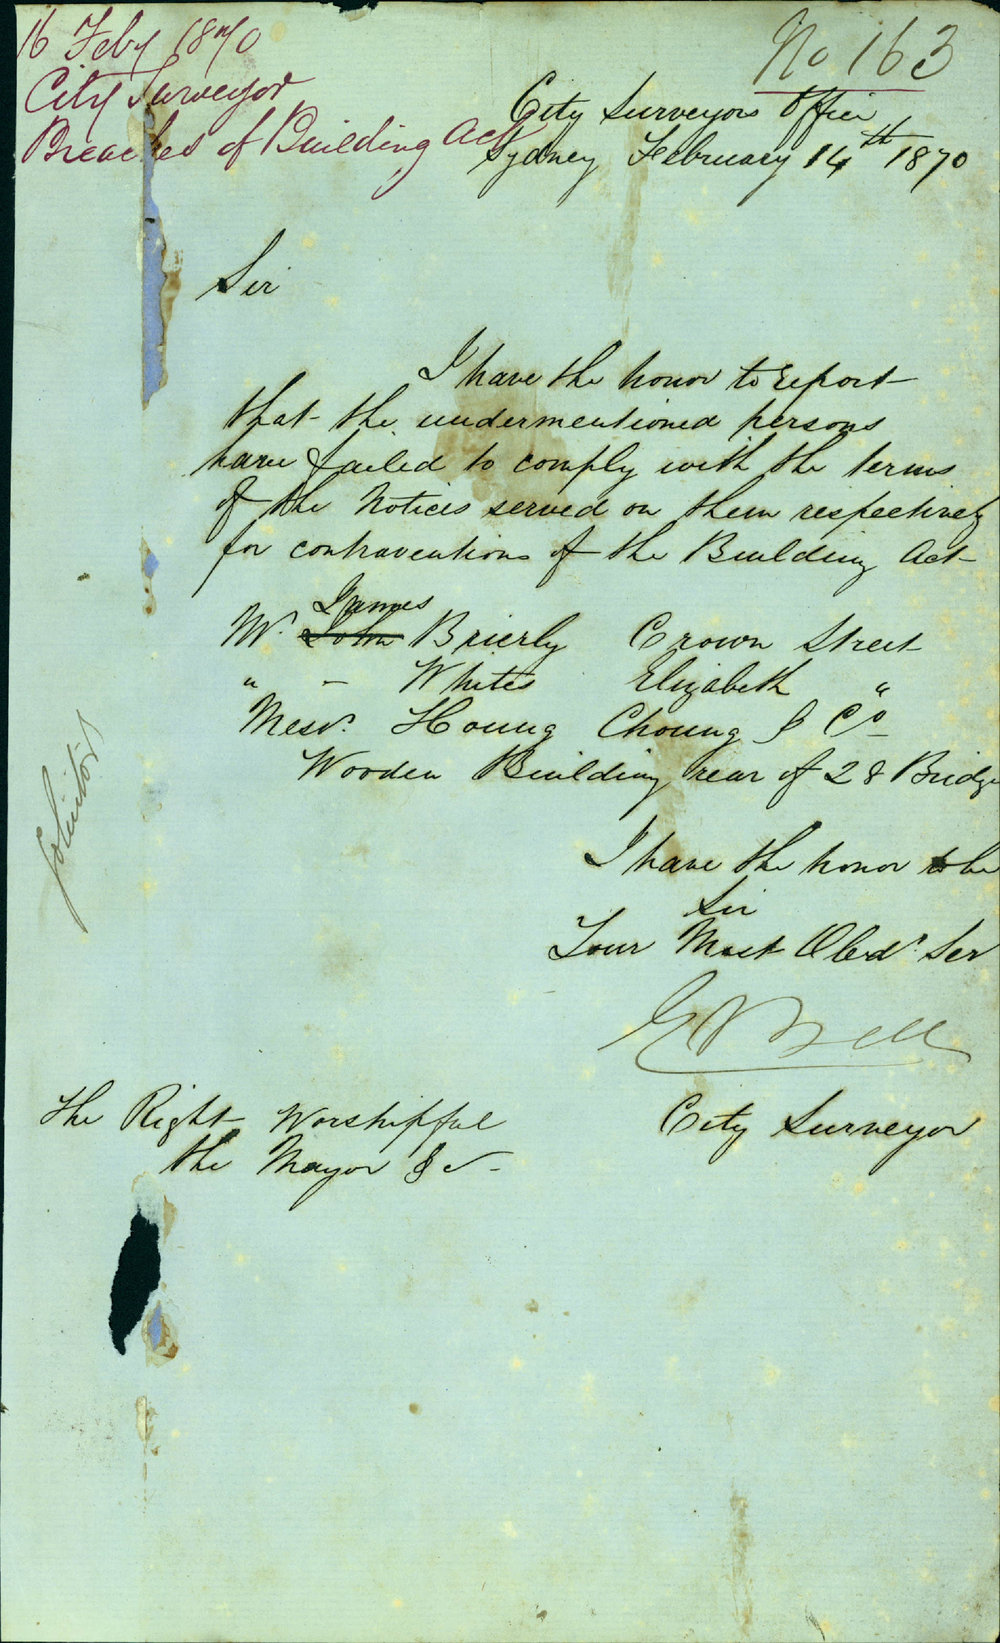 16 Feby 1870
City Surveyor
Breaches of Building Act
No 163
City Surveyors Office
Sydney February 14th 1870
Sir
I have the honor to report
that the undermentioned persons
have failed to comply with the terms
of the Notices served on them respectively
for contraventions of the Building Act
James
Mr. John Brierly Crown Street
" - Whites Elizabeth "
Messrs. Houng Choung & Co
Wooden Building rear of 28 Bridge
I have the honor to be
Sir
Your Most Obedt. Ser
City Surveyor
The Right Worshipful
the Mayor &c
Solicitor